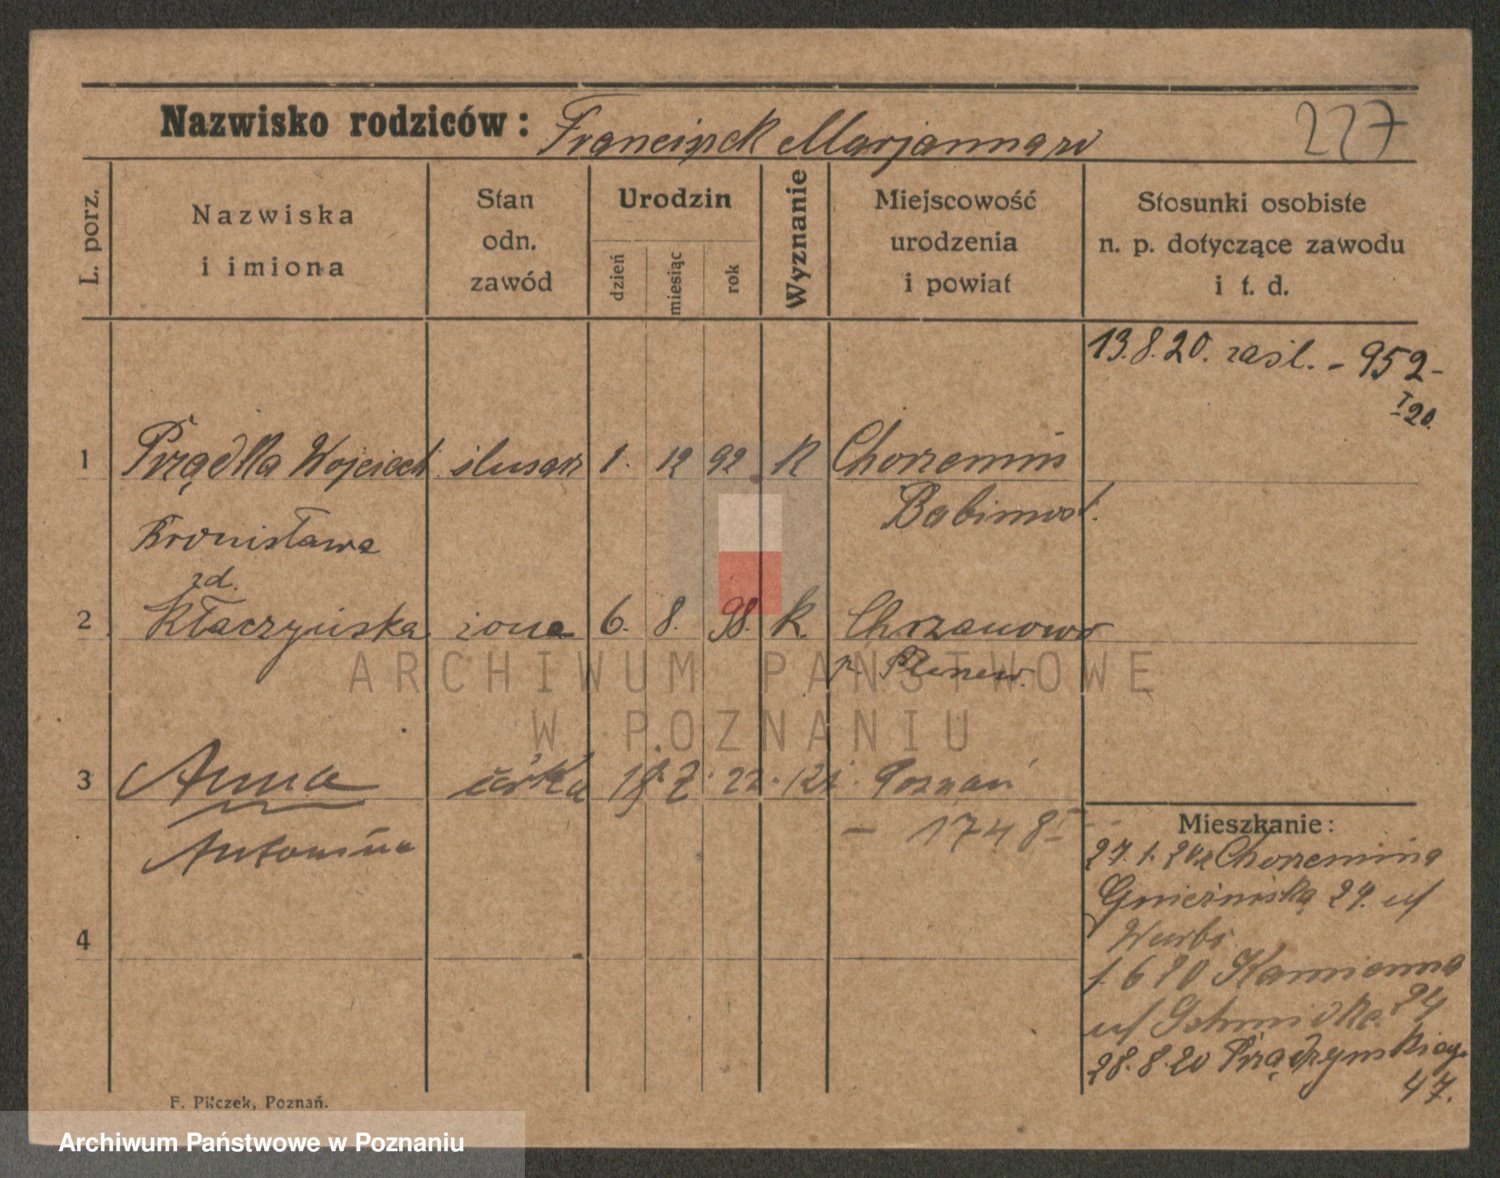 Nazwisko rodziców: Franciszek Marjanna
227
L. porz.
Nazwiska
i imiona
Stan
odn.
zawód
Urodzin
dzień
miesiąc
rok
Wyznanie
Miejscowość
urodzenia
i powiat
Stosunki osobiste
n. p. dotyczące zawodu
i t. d.
13.8.20. zaśl. - 952-
I 20.
1 Prządka Wojciech ślusarz 1. 12 92 K Chorzemin
Babimost.
Bronisława
zd.
2 Kłaczyńska żona 6. 8. 98. K. Chrzanowo
p.
3 Anna córka 2. 22. Poznań
- 1748
Antonina
4
Mieszkanie:
27.1.20 z Chorzemina
Gnieźnińska 29.
1 6 20 Kamienna
24
28.8.20 Prądzyńskiego
47.
F. Pilczek, Poznań.
ARCHIWUM PAŃSTWOWE
W POZNANIU
Archiwum Państwowe w Poznaniu